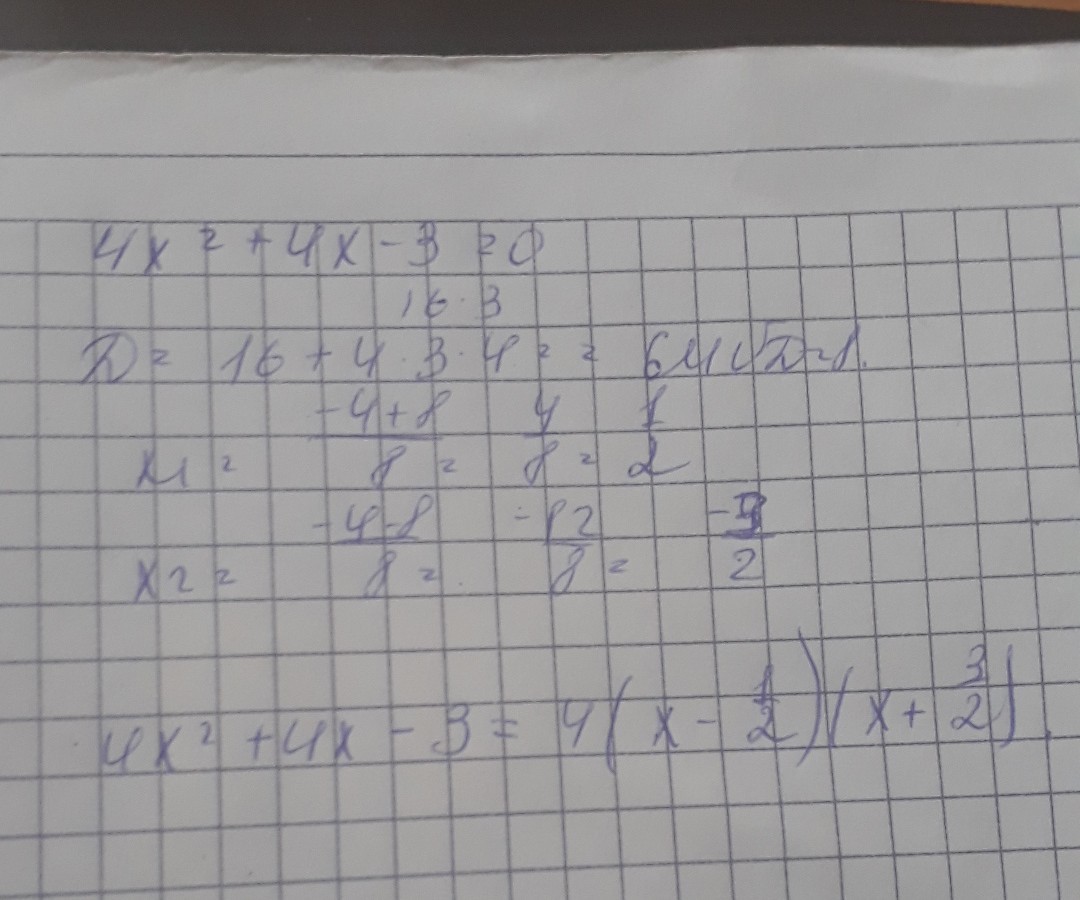 4x² + 4x - 3 = 0
16·3
D = 16 + 4·3·4 = = 64 √D = 8.
x1 = -4+8/8 = 4/8 = 1/2
x2 = -4-8/8 = -12/8 = -3/2
4x² + 4x - 3 = 4(x - 1/2)(x + 3/2)